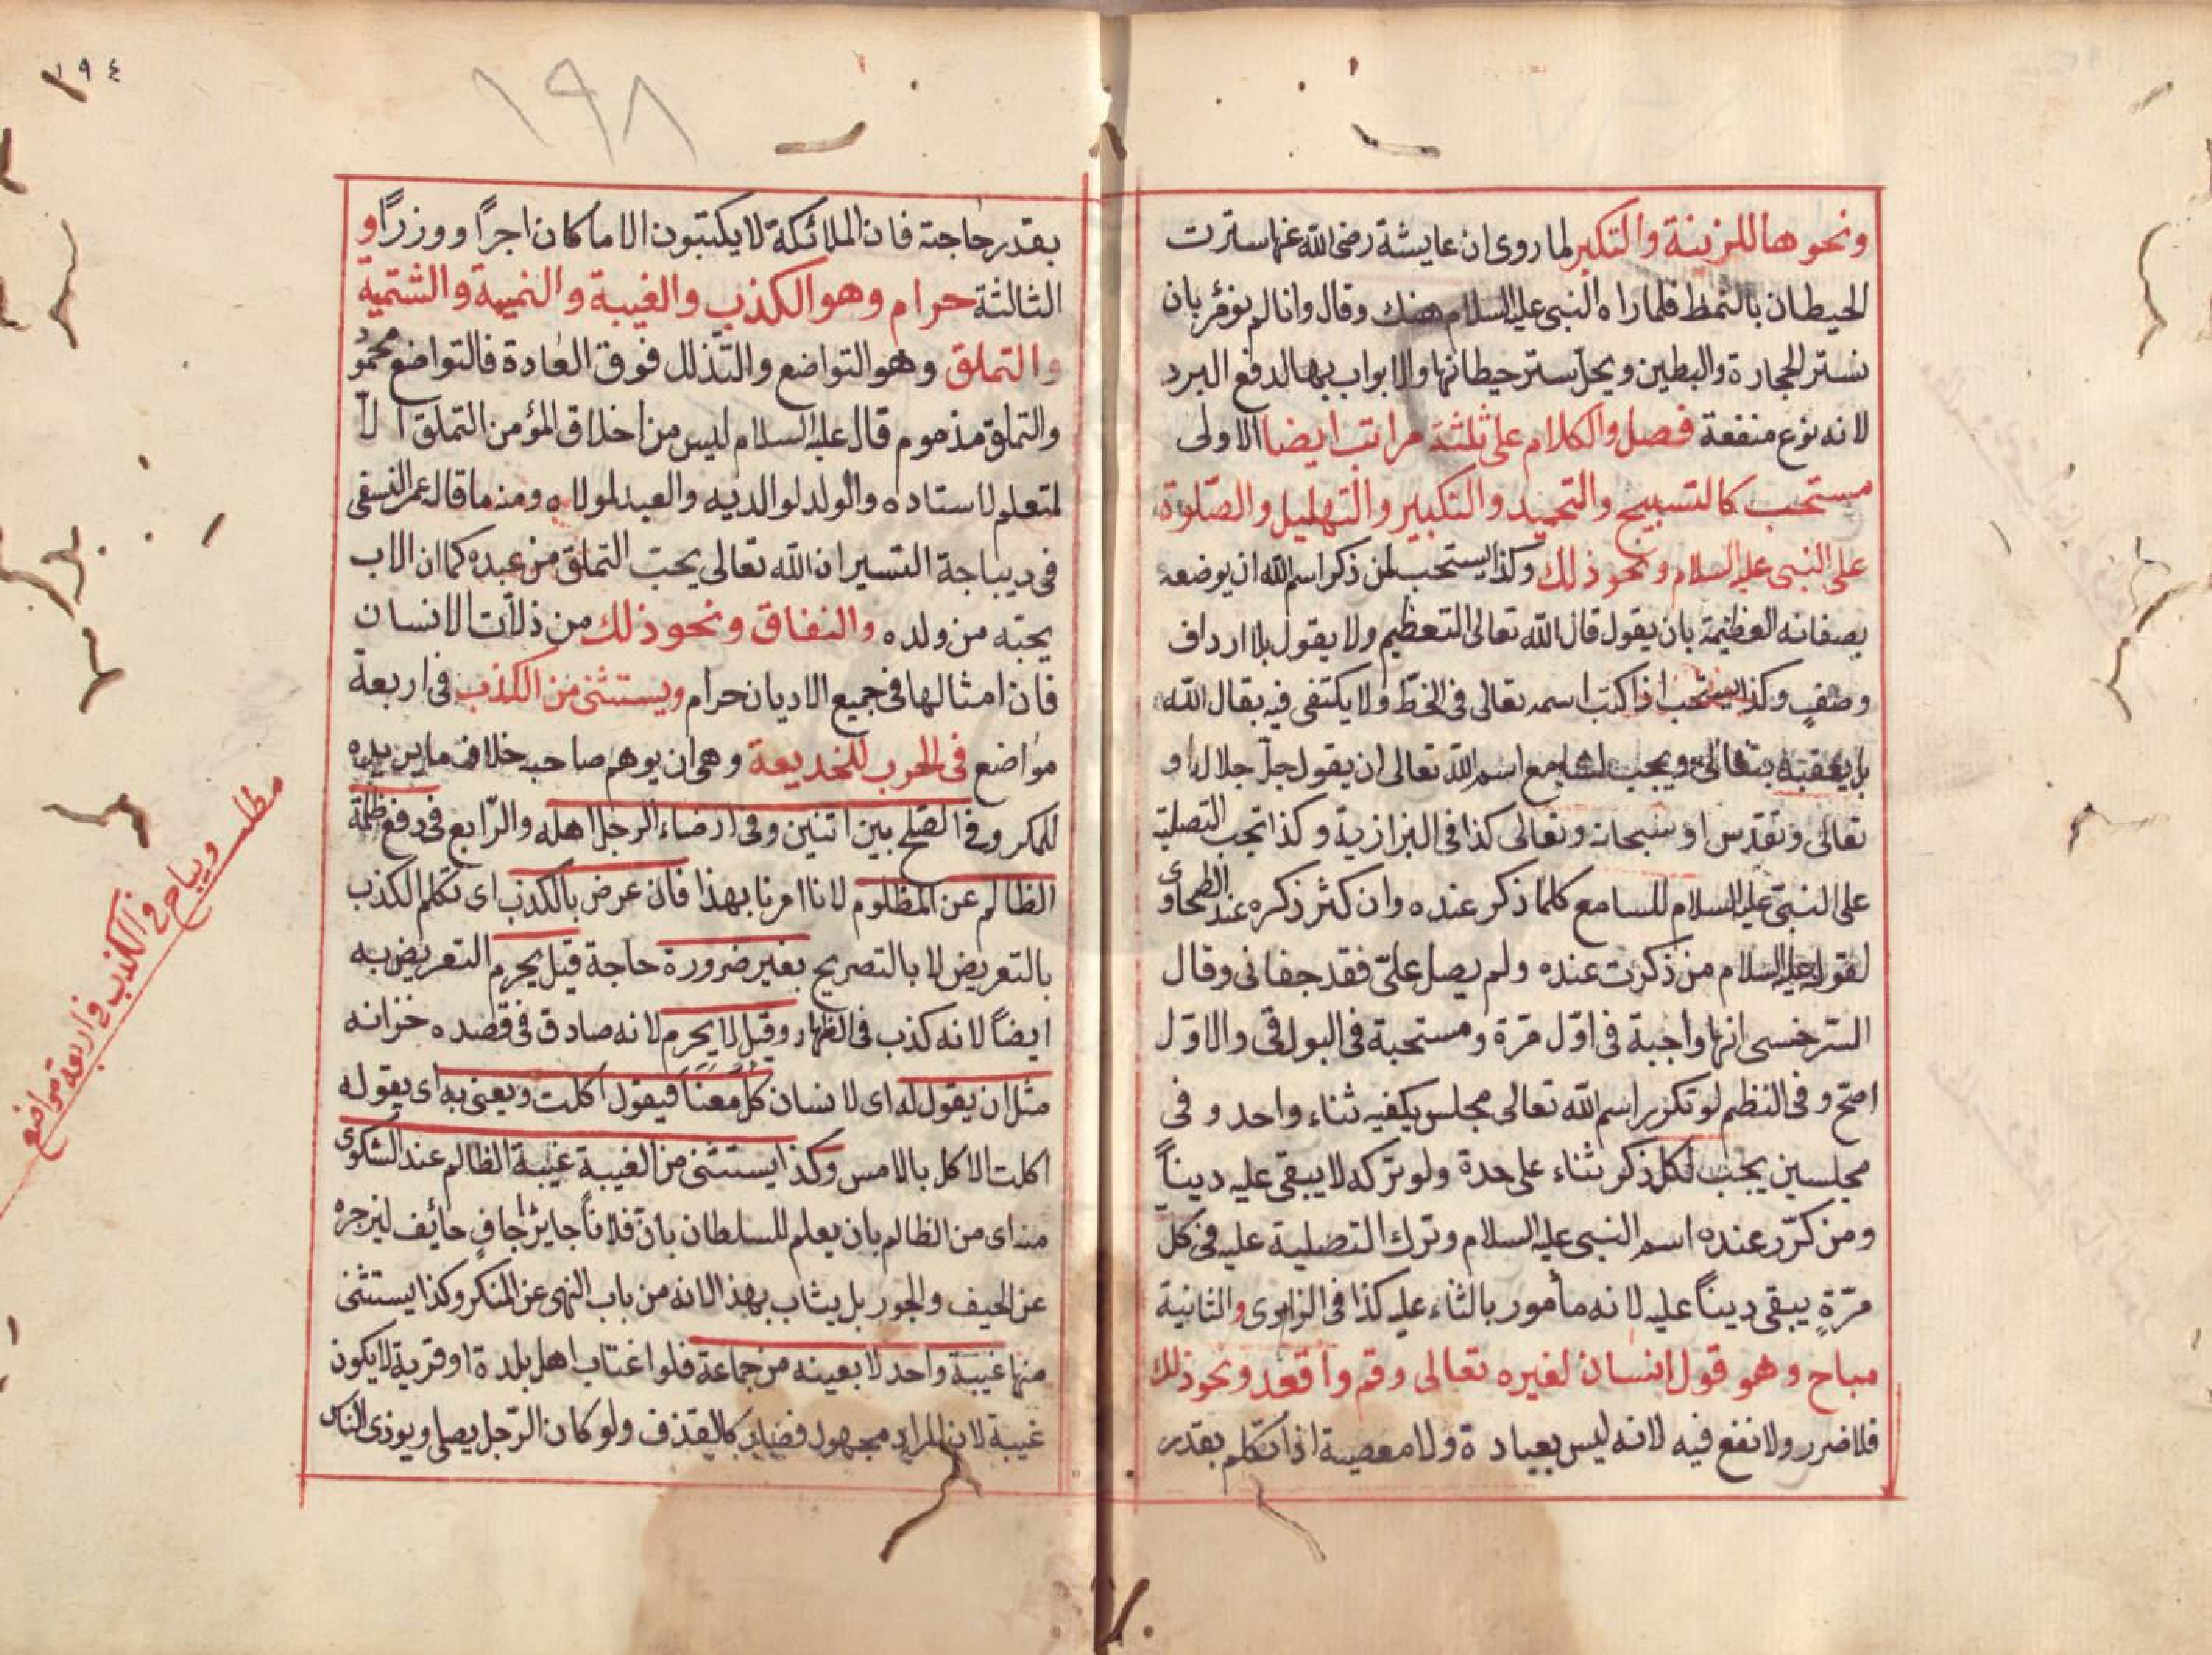 ونحوها للزينة والتكبر لما روى ان عايشة رضى الله عنها سترت
الحيطان بالنمط فلما راه النبى عليه السلام هتك وقال وانا لم نؤمر بان
نستر الحجارة والطين ويحل ستر حيطانها والابواب بها لدفع البرد
لانه نوع منفعة فصل والكلام على ثلثة مراتب ايضا الاولى
مستحب كالتسبيح والتحميد والتكبير والتهليل والصلوة
على النبى عليه السلام ونحو ذلك وكذا يستحب لمن ذكر اسم الله ان يوضعه
بصفاته العظيمة بان يقول قال الله تعالى التعظيم ولا يقول بلا ارداف
وصف وكذا يستحب اذا كتب اسمه تعالى فى الخط ولا يكتفى فيه بقال الله
بل يعقبه بتعالى ويجب لسامع اسم الله تعالى ان يقول جل جلاله او
تعالى وتقدس او سبحانه وتعالى كذا فى البزازية وكذا تجب التصلية
على النبى عليه السلام للسامع كلما ذكر عنده وان كثر ذكره عند الطحاوى
لقوله عليه السلام من ذكرت عنده ولم يصل على فقد جفانى وقال
السرخسى انها واجبة فى اول مرة ومستحبة فى البواقى والاول
اصح وفى النظم لو تكرر اسم الله تعالى مجلس يكفيه ثناء واحد وفى
مجلسين يجب لكل ذكر ثناء على حدة ولو تركه لا يبقى عليه دينا
ومن كرر عنده اسم النبى عليه السلام وترك التصلية عليه فى كل
مرة يبقى دينا عليه لانه مأمور بالثناء عليه كذا فى الزاهدى والثانية
مباح وهو قول انسان لغيره تعالى وقم واقعد ونحو ذلك
فلا ضرر ولا نفع فيه لانه ليس بعبادة ولا معصية اذا تكلم بقدر
١٩٤
١٩٨
بقدر حاجته فان الملائكة لا يكتبون الا ما كان اجرا ووزرا و
الثالثة حرام وهو الكذب والغيبة والنميمة والشتمية
والتملق وهو التواضع والتذلل فوق العادة فالتواضع محمود
والتملق مذموم قال عليه السلام ليس من اخلاق المؤمن التملق الا
لمتعلم لاستاده والولد لوالديه والعبد لمولاه ومنه ما قاله عمر النسفى
فى ديباجة التسير ان الله تعالى يحب التملق من عبده كما ان الاب
يحبه من ولده والنفاق ونحو ذلك من ذلات الانسان
فان امثالها فى جميع الاديان حرام ويستثنى من الكذب فى اربعة
مواضع فى الحرب للخديعة وهى ان يوهم صاحبه خلاف ما يريده
للمكر وفى الصلح بين اثنين وفى ارضاء الرجل اهله والرابع فى دفع ظلمة
الظالم عن المظلوم لانا امرنا بهذا فان عرض بالكذب اى تكلم الكذب
بالتعريض لا بالتصريح بغير ضرورة حاجة قيل يحرم التعريض به
ايضا لانه كذب فى الظاهر وقيل لا يحرم لانه صادق فى قصده خزانه
مثل ان يقول له اى لانسان كل معنا فيقول اكلت ويعنى به اى يقوله
اكلت الاكل بالامس وكذا يستثنى من الغيبة غيبة الظالم عند الشكوى
منه اى من الظالم بان يعلم للسلطان بان فلانا جايز جاف حائف ليزجره
عن الحيف والجور بل يثاب بهذا لانه من باب النهى عن المنكر وكذا يستثنى
منها غيبة واحد لا بعينه من جماعة فلو اغتاب اهل بلدة او قرية لا يكون
غيبة لان المراد مجهول فصار كالقذف ولو كان الرجل يصلى ويوذى الناس
مطلب ويباح فى الكذب فى اربعة مواضع